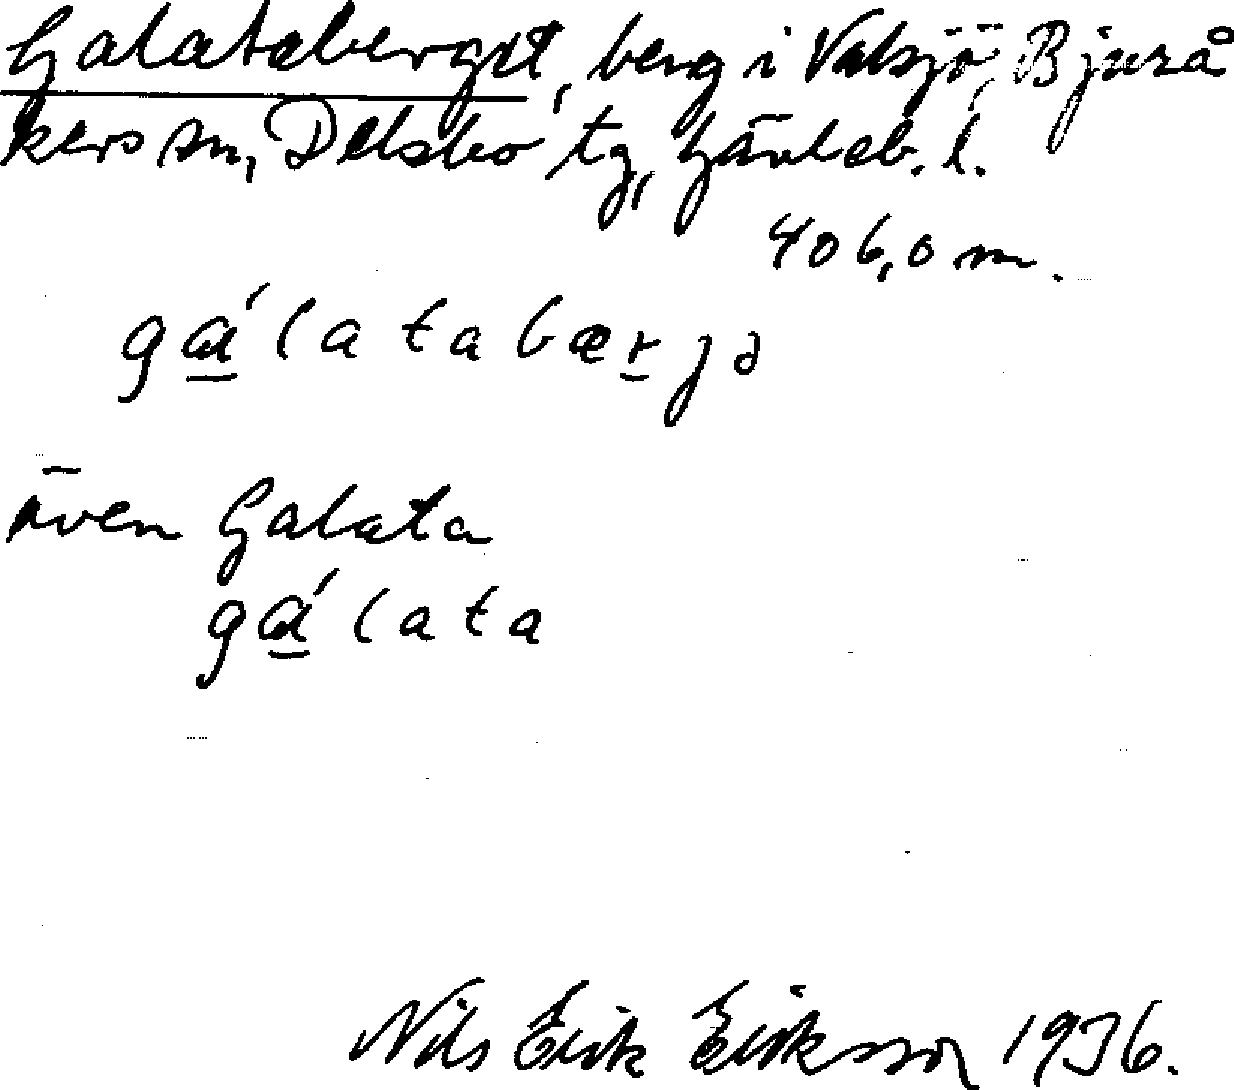 Galataberget, berg i Valsjö, Bjurå
kers sn, Delsbo tg, Gävleb. l.
406,0 m.
gá̱latabær̠jə
även Galata
gá̱lata
Nils Erik Eriksson 1936.